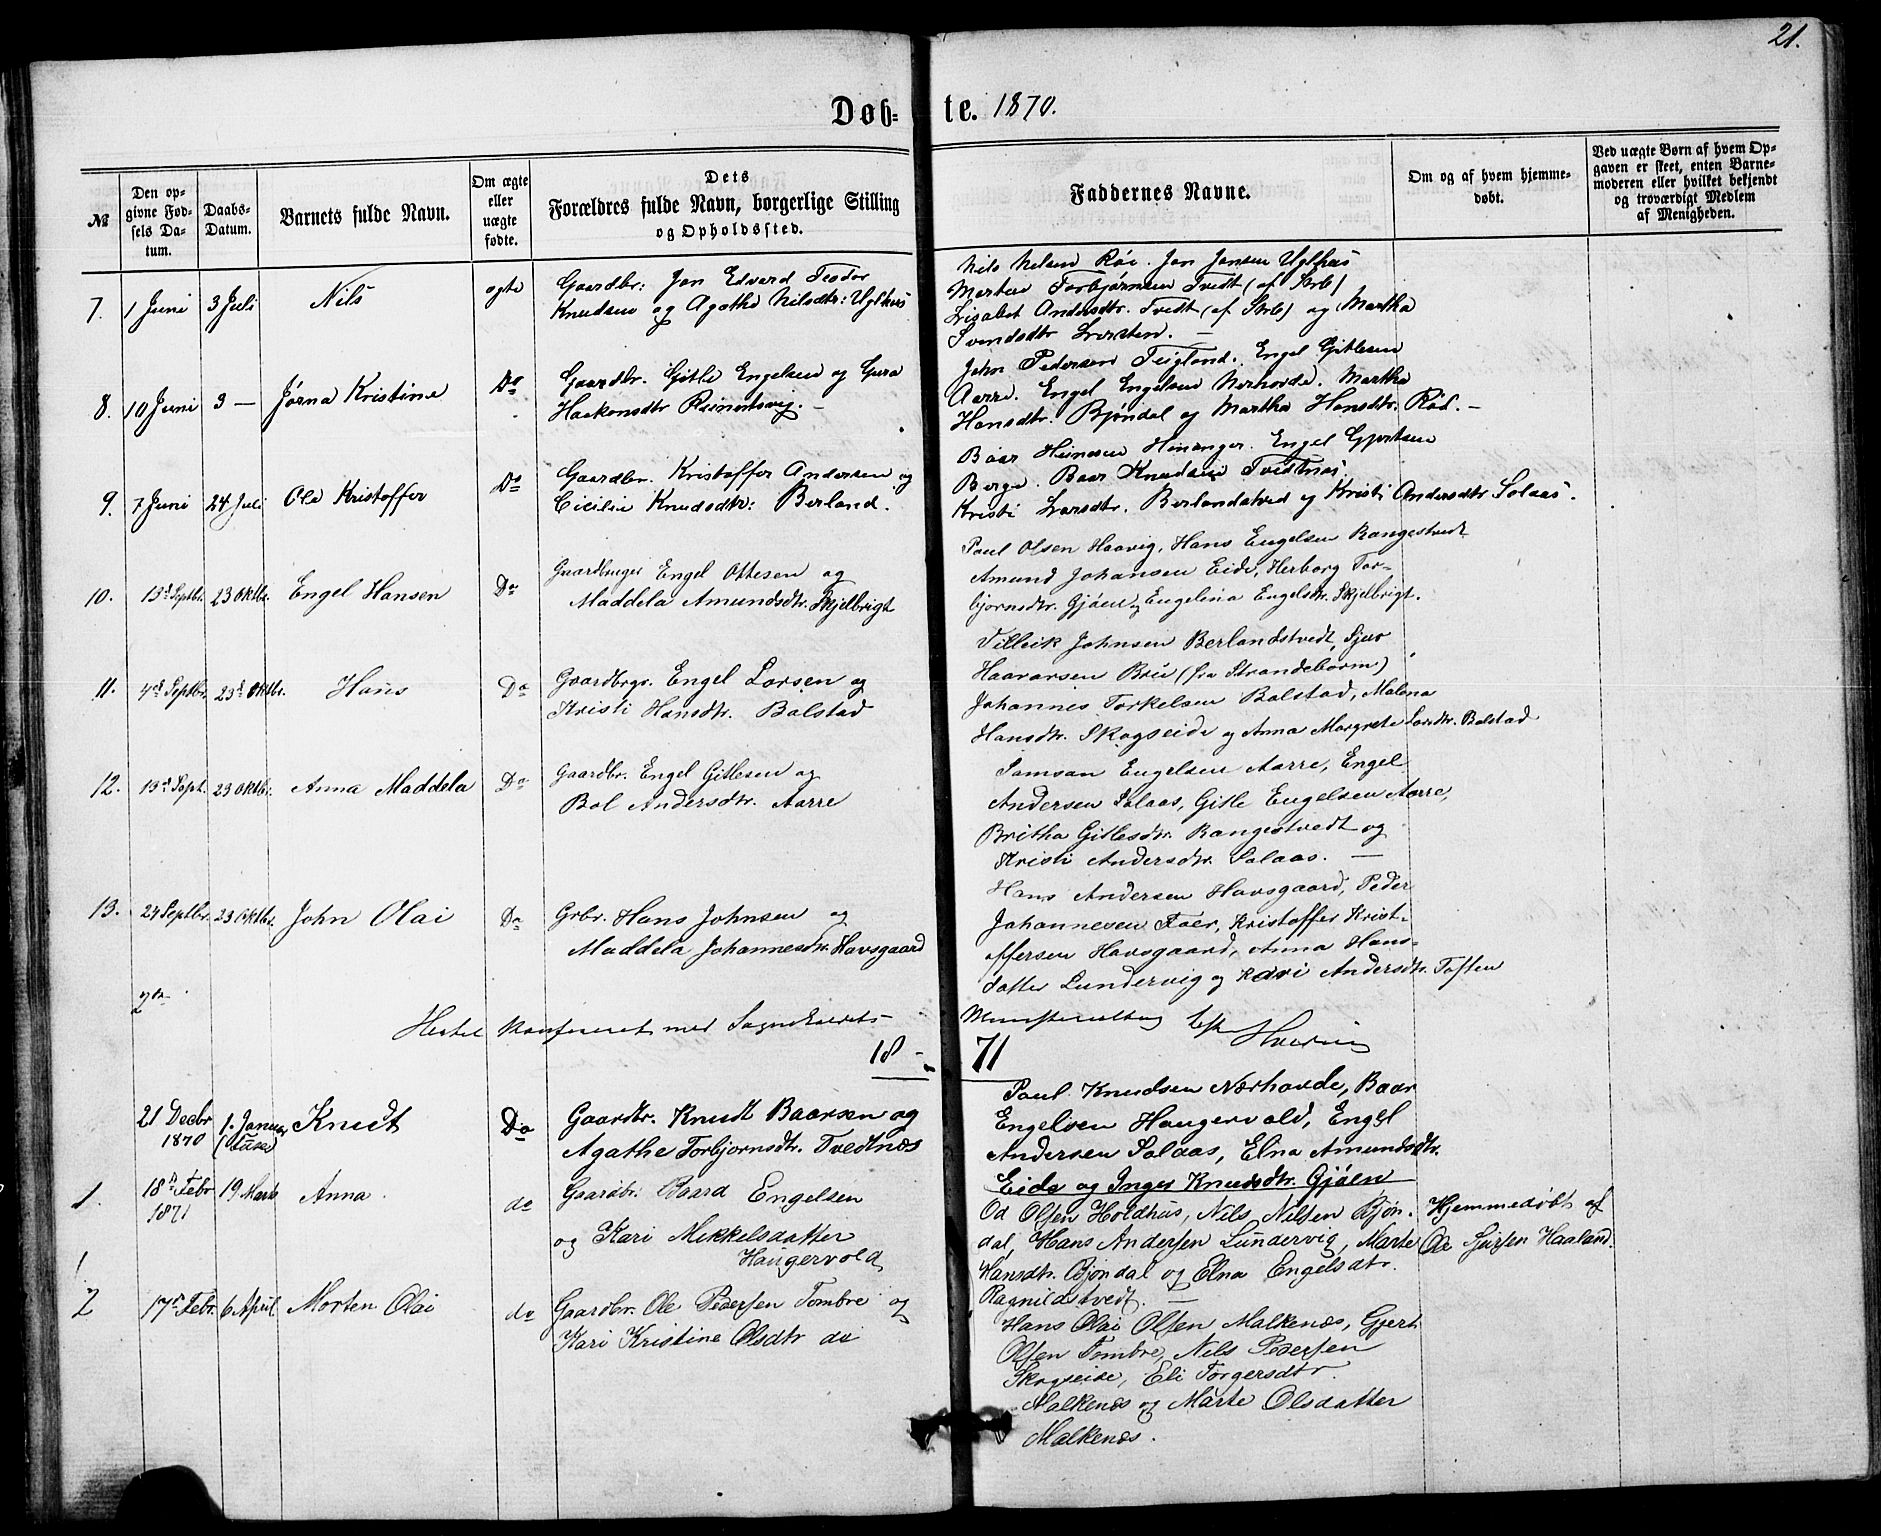 21.
Døb- te. 1870.
№
Den opgivne Fødsels Datum.
Daabs-Datum.
Barnets fulde Navn.
Om ægte eller uægte fødte.
Dets Forældres fulde Navn, borgerlige Stilling og Opholdssted.
Faddernes Navne.
Om og af hvem hjemmedøbt.
Ved uægte Børn af hvem Opgaven er skeet, enten Barnemoderen eller hvilket bekjendt og troværdigt Medlem af Menigheden.
7. 1 Juni 3 Juli Nils ægte
Gaardbr: Jon Edvard Teodor
Knudsen og Agathe Nilsdtr: Uglhus
Nils Nilsen Röe. Jon Jonsen Uglhus
Morten Torbjørnsen Tvedt (af Strb)
Lisabet Andersdtr. Tvedt (af Strb) og Martha
Svendsdtr
8. 10 Juni 3 — Jørna Kristine Do
Gaardbr. Gitle Engelsen og Gura
Haakonsdtr Reinertsvig. —
John Pedersen Teigland. Engel Gitlesen
Aarre. Engel Engelsen Nerhovde. Martha
Hansdtr. Bjöndal og Martha Hansdtr. Röd. —
9. 7 Juni 24 Juli Ole Kristoffer Do
Gaardbr. Kristoffer Andersen og
Cicilie Knudsdtr: Berland.
Baar Hinanger. Engel Gjertsen
Berge. Baar Knudsen Tvedtnes.
Kristi Larsdtr. Berlandstved og Kristi Andersdtr Solaas.
10. 13d Septbr. 23 Oktbr. Engel Hansen Do
Gaardbruger Engel Ottesen og
Maddela Amundsdtr. Skjelbrigt
Paul Olsen Haavig, Hans Engelsen Rangestvedt
Amund Johansen Eide, Herborg Tor-
bjornsdtr. Gjöen og Engelina Engelsdtr. Skjelbrigt.
11. 4de Septbr. 23de Oktbr. Hans Do
Gaardbrgr. Engel Larsen og
Kristi Hansdtr. Bolstad
Villeik Johnsen Berlandstvedt, Sjur
Haavarsen Brue (fra Strandebarm)
Johannes Torkelsen Bolstad, Malena
Hansdtr. Skogseide og Anna Margrete Larsdtr. Bolstad
12. 13d Sept. 23 Oktbr. Anna Maddela Do
Gaardbr. Engel Gitlesen og
Bol Andersdtr. Aarre
Samson Engelsen Aarre, Engel
Andersen Solaas, Gitle Engelsen Aarre,
Britha Gitlesdtr. Rangestvedt og
Kristi Andersdtr. Solaas. —
13. 24 Septbr. 23 Oktbr. John Olai Do
Grbr. Hans Johnsen og
Maddela Johannesdtr. Havsgaard
Hans Andersen Havsgaard, Peder
Johannesen Faer, Kristoffer Krist-
offersen Havsgaard, Anna Hans-
datter Lundervig og Kari Andersdtr. Toften
Hertil konfereret med Sognekaldets
Ministerialbog
18 - 71
21 Decbr 1870 1. Januar Knut Do
Gaardbr. Knudt Baarsen og
Agathe Torbjornsdtr. Tvedtnæs
Paul Knudsen Nærhovde, Baar
Engelsen Haugervold, Engel
Andersen Solaas, Elna Amundsdtr.
Eide og Inger Knudsdtr. Gjöen
1. 18d Febr 1871 19 Marts Anna do
Gaardbr: Baard Engelsen
og Kari Mikkelsdatter
Haugervold
Od Olsen Holdhus, Nils Nilsen Bjön-
dal, Hans Andersen Lundervig, Marte
Hansdtr. Bjöndal og Elna Engelsdtr.
Ragnildstvedt. —
Hjemmedøbt af
Ole Sjursen Haaland.
2 17d Febr. 6 April Morten Olai do
Gaardbr. Ole Pedersen Tombre og
Kari Kristine Olsdtr do
Hans Olai Olsen Malkenæs, Gjert
Olsen Tombre, Nils Pedersen
Skogseide, Eli Torgersdtr.
Malkenæs og Marte Olsdatter
Malkenæs.